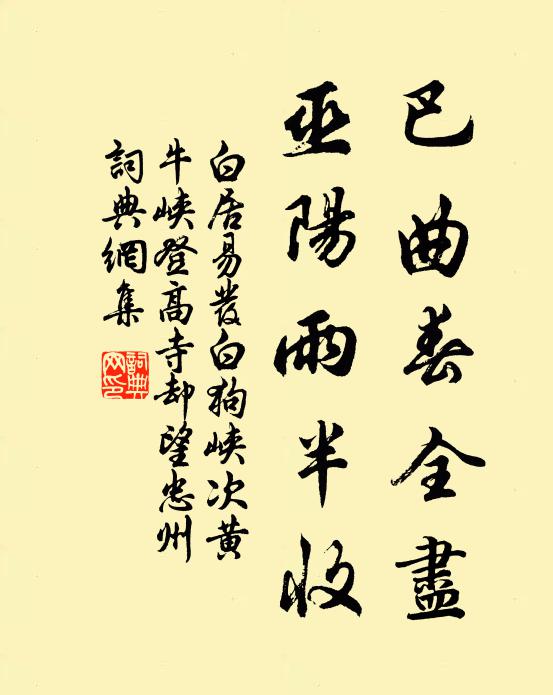 巴曲春全盡
巫陽雨半收
白居易發白狗峽次黃
牛峽登高寺却望忠州
詞典網集
詞典網印